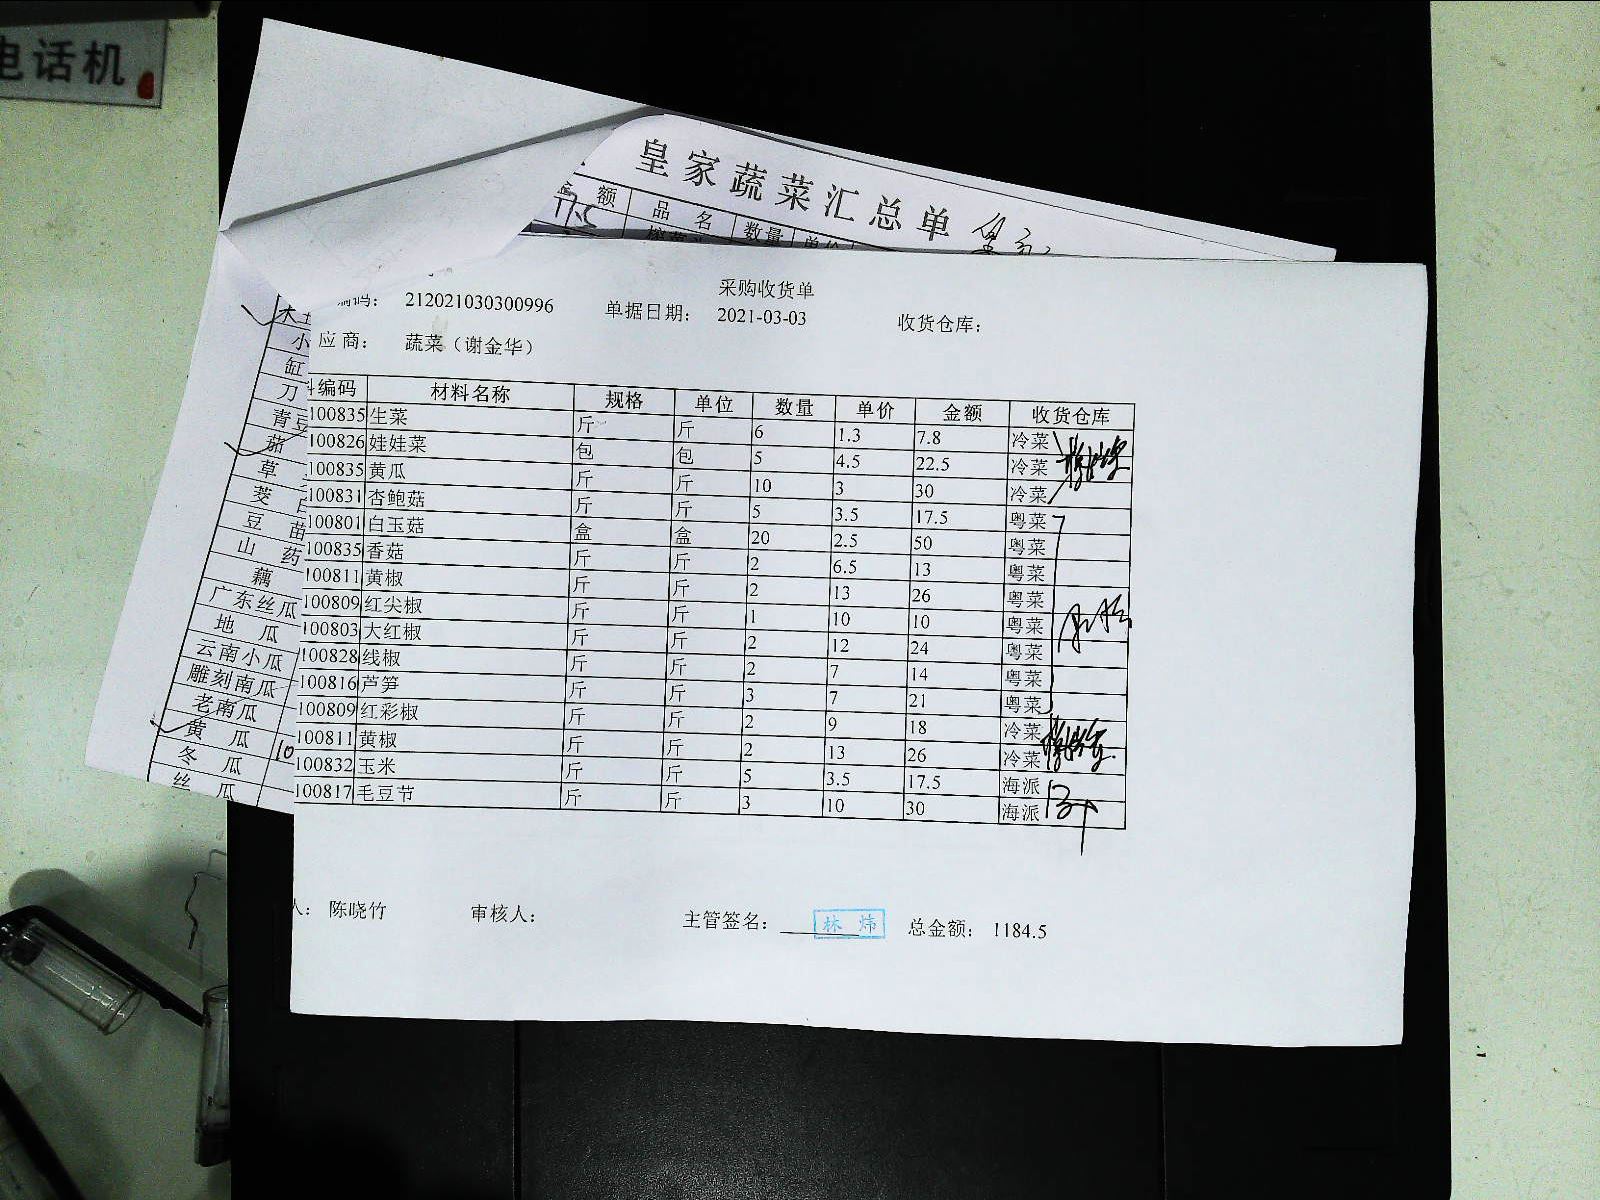 电话机
皇家蔬菜汇总单
额 品名 数量 单价
采购收货单
编码： 212021030300996 单据日期： 2021-03-03 收货仓库：
应商： 蔬菜（谢金华）
编码 材料名称 规格 单位 数量 单价 金额 收货仓库
100835 生菜 斤 斤 6 1.3 7.8 冷菜
100826 娃娃菜 包 包 5 4.5 22.5 冷菜
100835 黄瓜 斤 斤 10 3 30 冷菜
100831 杏鲍菇 斤 斤 5 3.5 17.5 粤菜
100801 白玉菇 盒 盒 20 2.5 50 粤菜
100835 香菇 斤 斤 2 6.5 13 粤菜
100811 黄椒 斤 斤 2 13 26 粤菜
100809 红尖椒 斤 斤 1 10 10 粤菜
100803 大红椒 斤 斤 2 12 24 粤菜
100828 线椒 斤 斤 2 7 14 粤菜
100816 芦笋 斤 斤 3 7 21 粤菜
100809 红彩椒 斤 斤 2 9 18 冷菜
100811 黄椒 斤 斤 2 13 26 冷菜
100832 玉米 斤 斤 5 3.5 17.5 海派
100817 毛豆节 斤 斤 3 10 30 海派
人： 陈晓竹 审核人： 主管签名： 林炜 总金额： 1184.5
小
缸
刀
青豆
茄
草
茭白
豆苗
山药
藕
广东丝瓜
地瓜
云南小瓜
雕刻南瓜
老南瓜
黄瓜 10
冬瓜
丝瓜